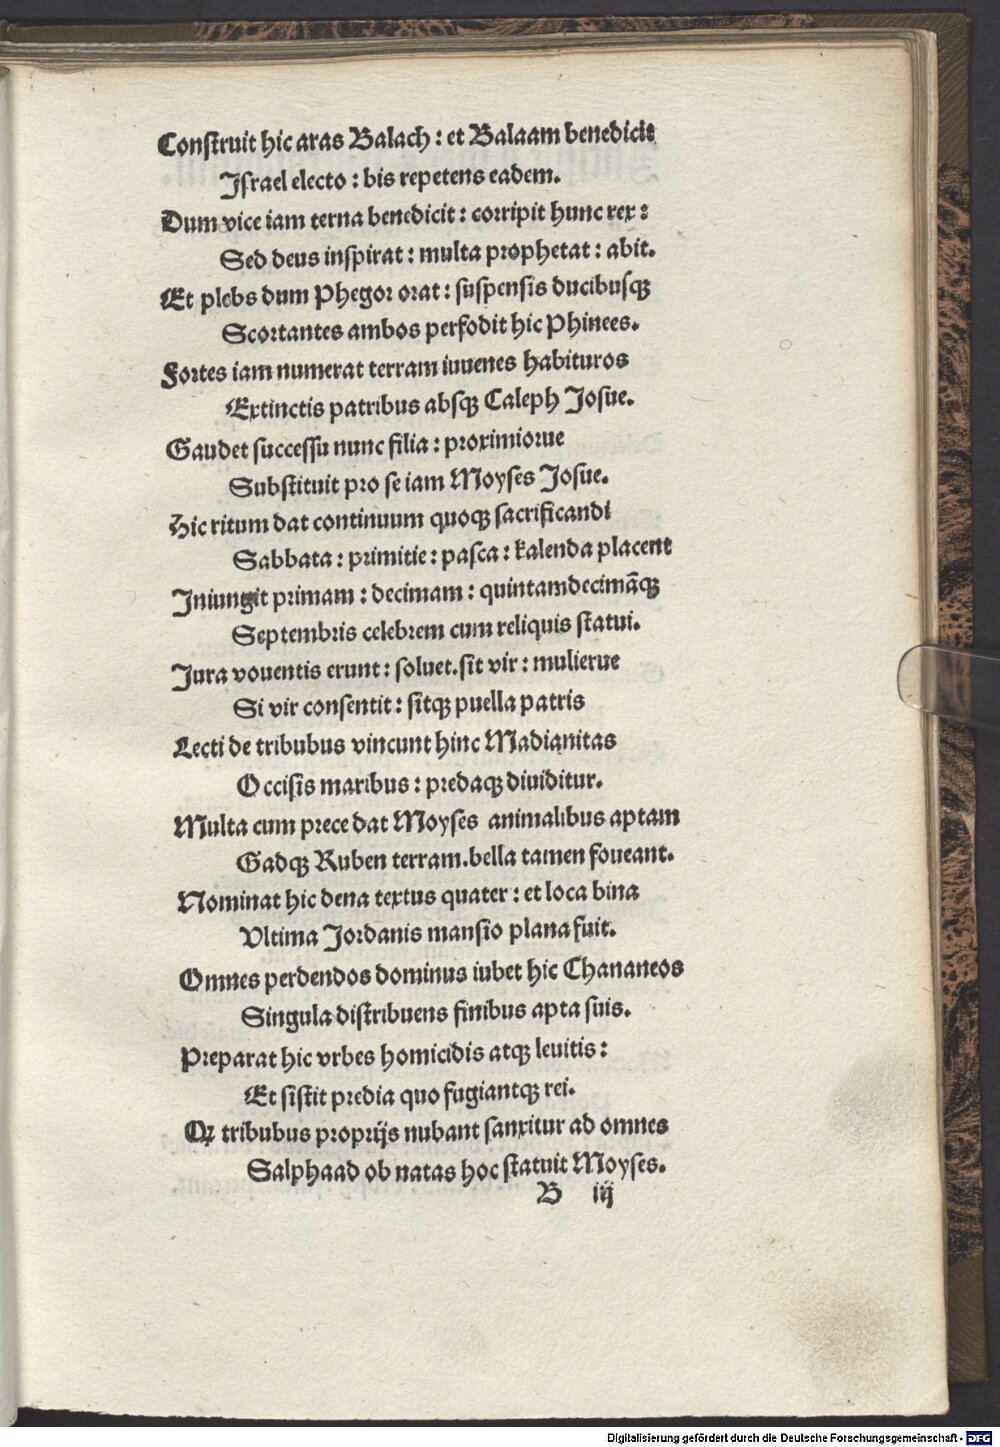 Construit hic aras Balach : et Balaam benedicit
Jſrael electo : bis repetens eadem.
Dum vice iam terna benedicit : corripit hunc rex :
Sed deus inſpirat : multa prophetat : abit.
Et plebs dum Phegor orat : ſuſpenſis ducibuſqꝫ
Scortantes ambos perfodit hic Phinees.
Fortes iam numerat terram iuuenes habituros
Extinctis patribus abſqꝫ Caleph Joſue.
Gaudet ſucceſſu nunc filia : proximiorue
Subſtituit pro ſe iam Moyſes Joſue.
Hic ritum dat continuum quoqꝫ ſacrificandi
Sabbata : primitie : paſca : kalenda placent
Jniungit primam : decimam : quintamdecimãqꝫ
Septembris celebrem cum reliquis ſtatui.
Jura vouentis erunt : ſoluet.ſit vir : mulierue
Si vir conſentit : ſitqꝫ puella patris
Lecti de tribubus vincunt hinc Madianitas
Occiſis maribus : predaqꝫ diuiditur.
Multa cum prece dat Moyſes animalibus aptam
Gadqꝫ Ruben terram.bella tamen foueant.
Nominat hic dena textus quater : et loca bina
Vltima Jordanis manſio plana fuit.
Omnes perdendos dominus iubet hic Chananeos
Singula diſtribuens finibus apta ſuis.
Preparat hic vrbes homicidis atqꝫ leuitis :
Et ſiſtit predia quo fugiantqꝫ rei.
Qꝫ tribubus proprijs nubant ſanxitur ad omnes
Salphaad ob natas hoc ſtatuit Moyſes.
B iij
Digitalisierung gefördert durch die Deutsche Forschungsgemeinschaft - DFG